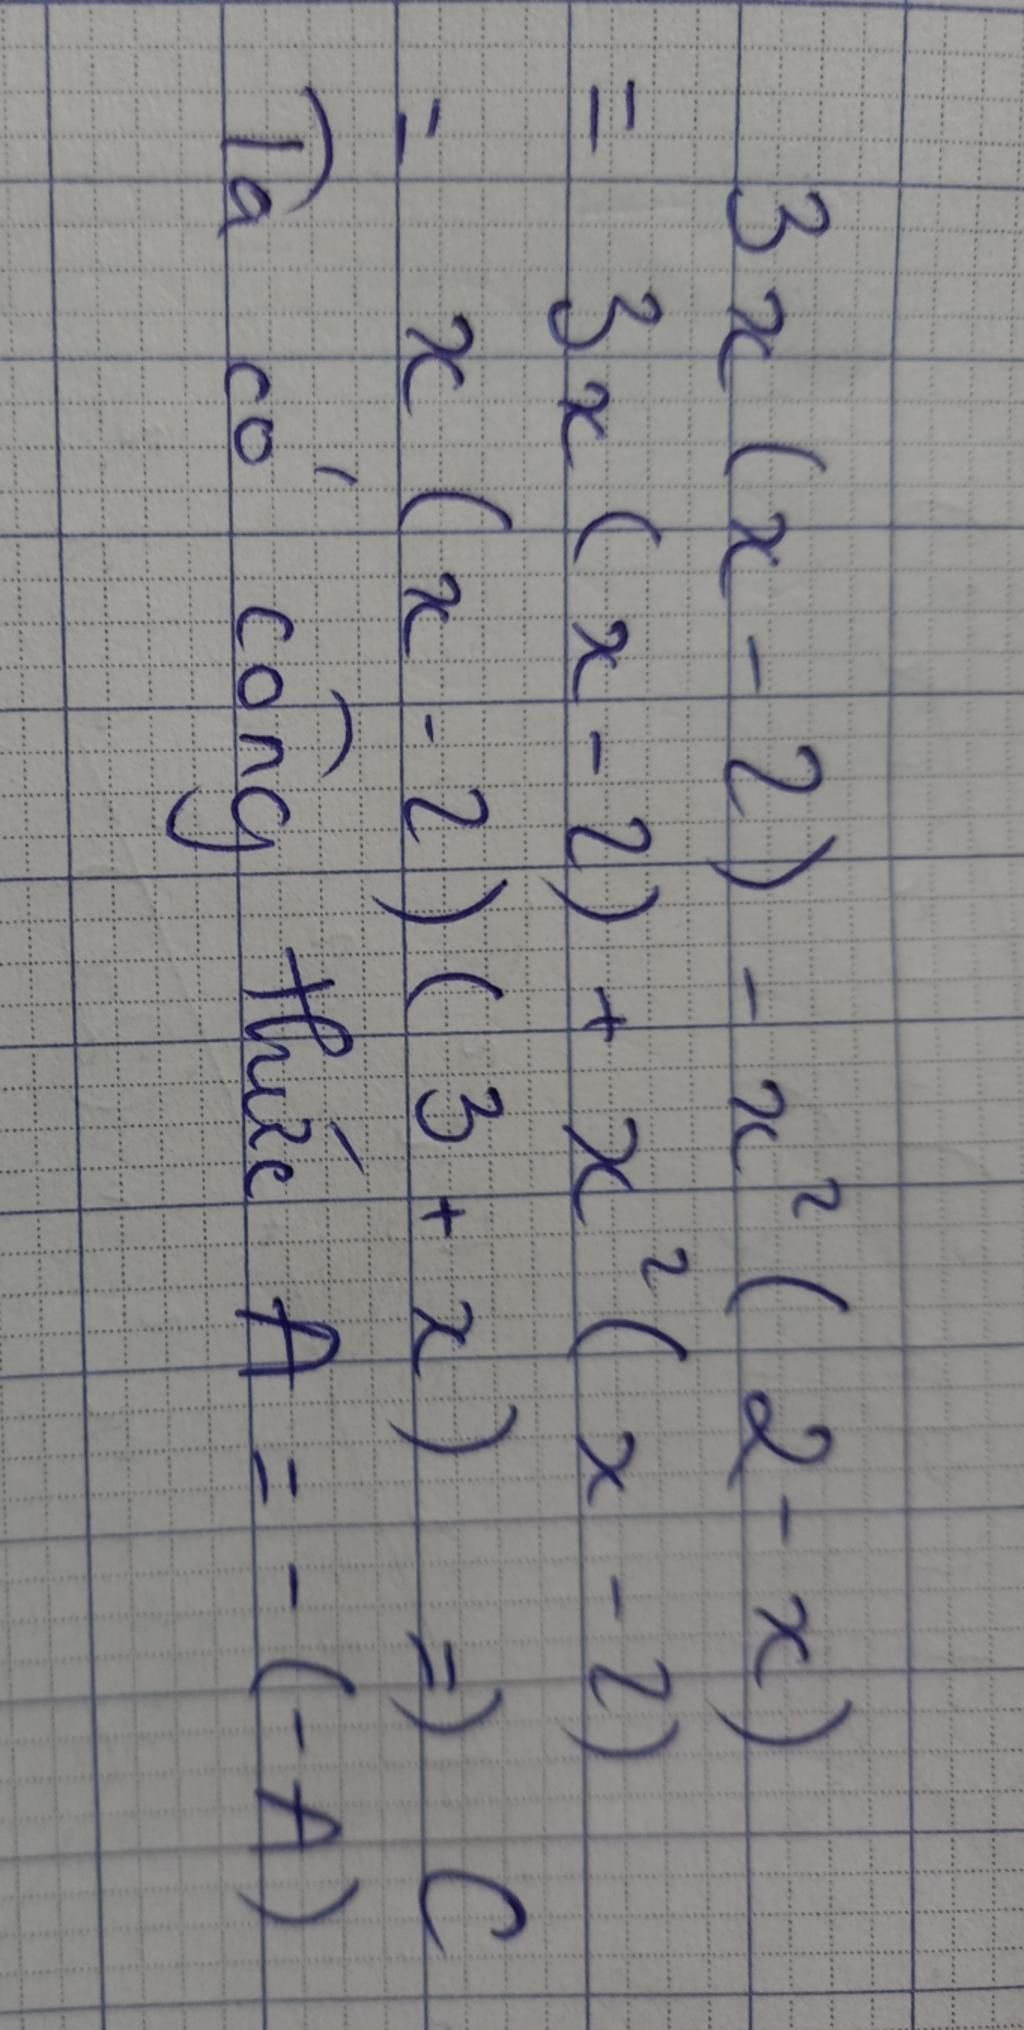 3x (x - 2) - x² (2 - x)
= 3x (x - 2) + x² (x - 2)
= x (x - 2) (3 + x) => C
Ta có công thức A = - (-A)